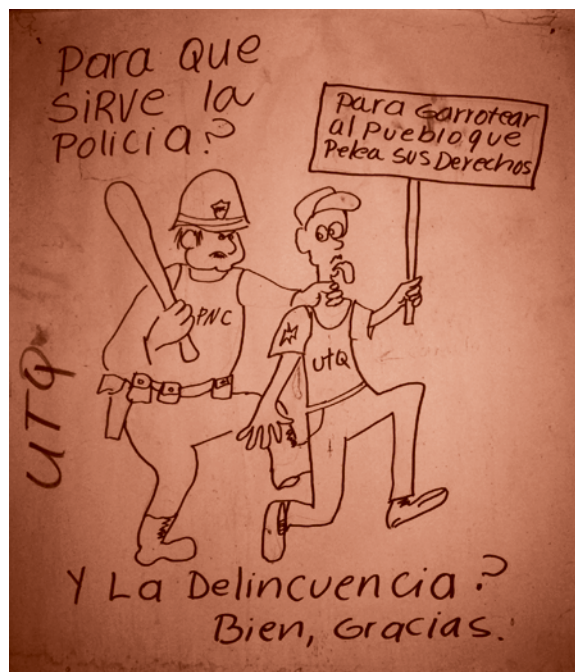 Para Que
SiRVE la
Policia?
Para Garrotear
al Pueblo que
Pelea sus Derechos
PNC
UTQ
UTQ
Y La Delincuencia?
Bien, Gracias.